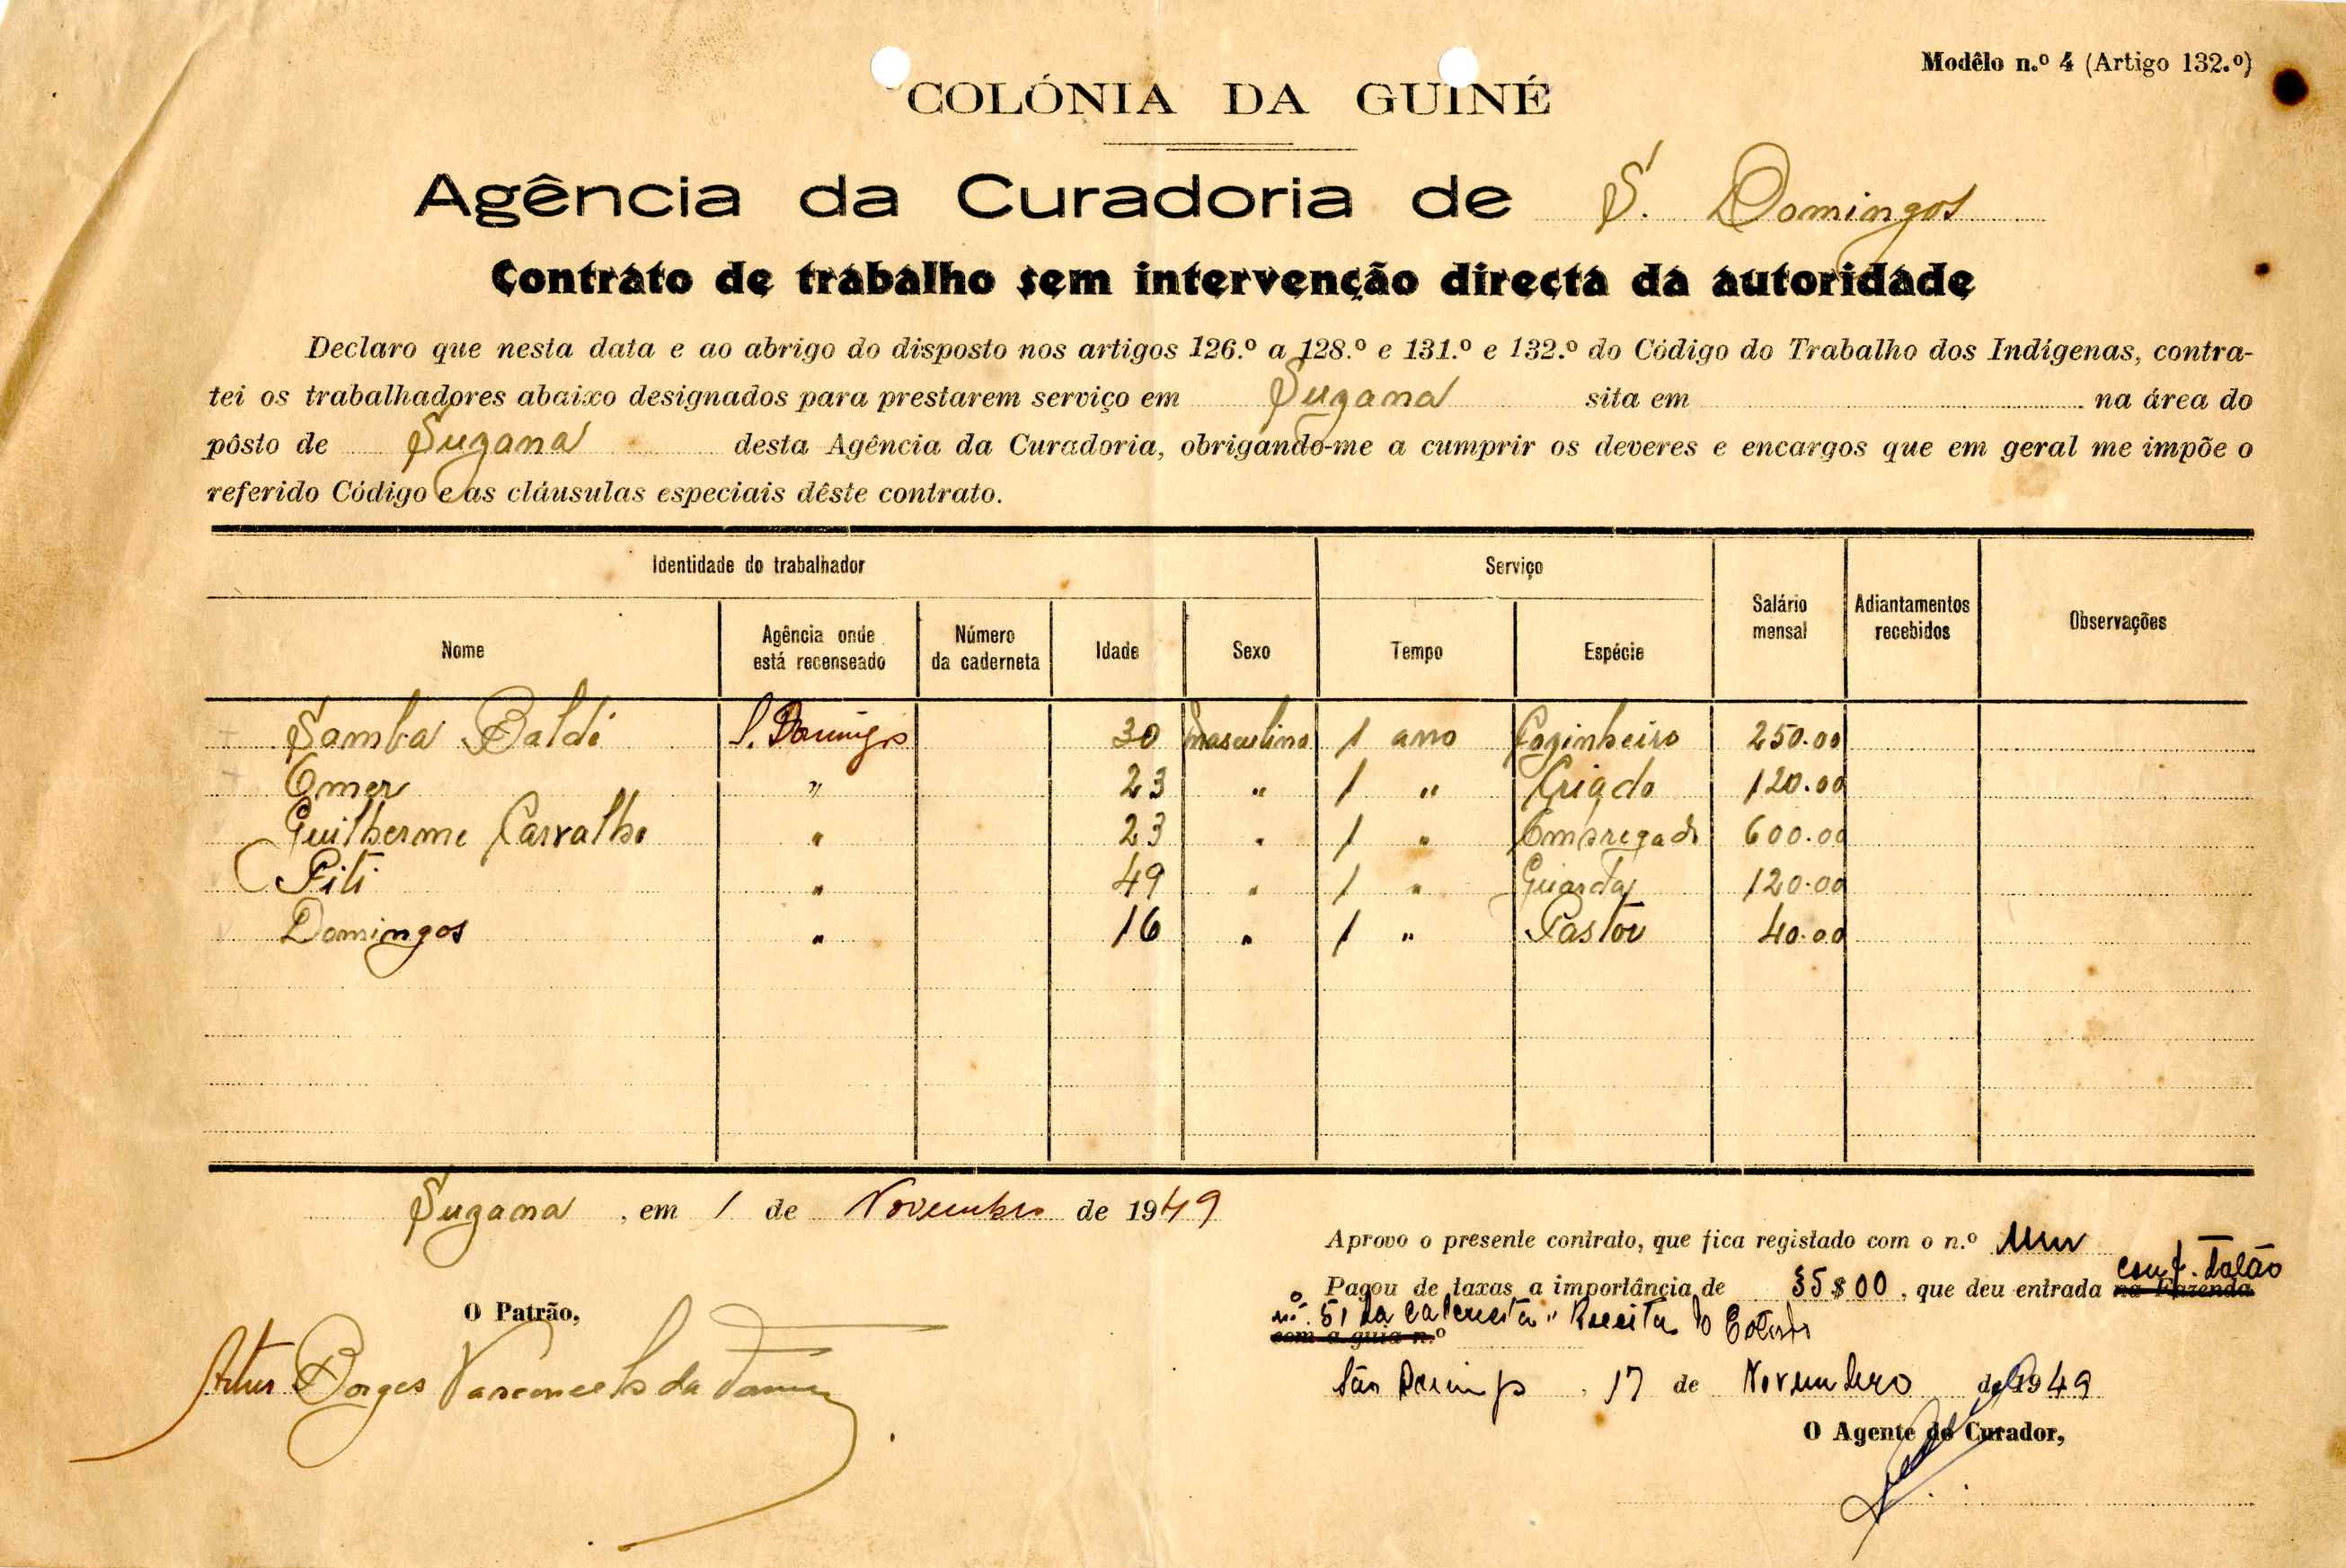 Modêlo n.º 4 (Artigo 132.º)
COLÓNIA DA GUINÉ
Agência da Curadoria de S. Domingos
Contrato de trabalho sem intervenção directa da autoridade
Declaro que nesta data e ao abrigo do disposto nos artigos 126.º a 128.º e 131.º e 132.º do Código do Trabalho dos Indígenas, contra-
tei os trabalhadores abaixo designados para prestarem serviço em Suzana sita em na área do
pôsto de Suzana desta Agência da Curadoria, obrigando-me a cumprir os deveres e encargos que em geral me impõe o
referido Código e as cláusulas especiais dêste contrato.
Identidade do trabalhador Serviço Salário mensal Adiantamentos recebidos Observações
Nome Agência onde está recenseado Número da caderneta Idade Sexo Tempo Espécie
Samba Baldi S. Domingos 30 masculino 1 ano Cozinheiro 250.00
Omer " 23 " 1 " Criado 120.00
Guilherme Carvalho " 23 " 1 " Empregado 600.00
Piti " 49 " 1 " Guarda 120.00
Domingos " 16 " 1 " Pastôr 40.00
Suzana, em 1 de Novembro de 1949
Aprovo o presente contrato, que fica registado com o n.º
Pagou de taxas a importância de 35$00, que deu entrada na Fazenda conf. Talão
nº. 51 da caderneta "Receitas do Estado
com a guia n.º
O Patrão,
Artur Borges Vasconcelos da
São Domingos, 17 de Novembro de 1949
O Agente do Curador,